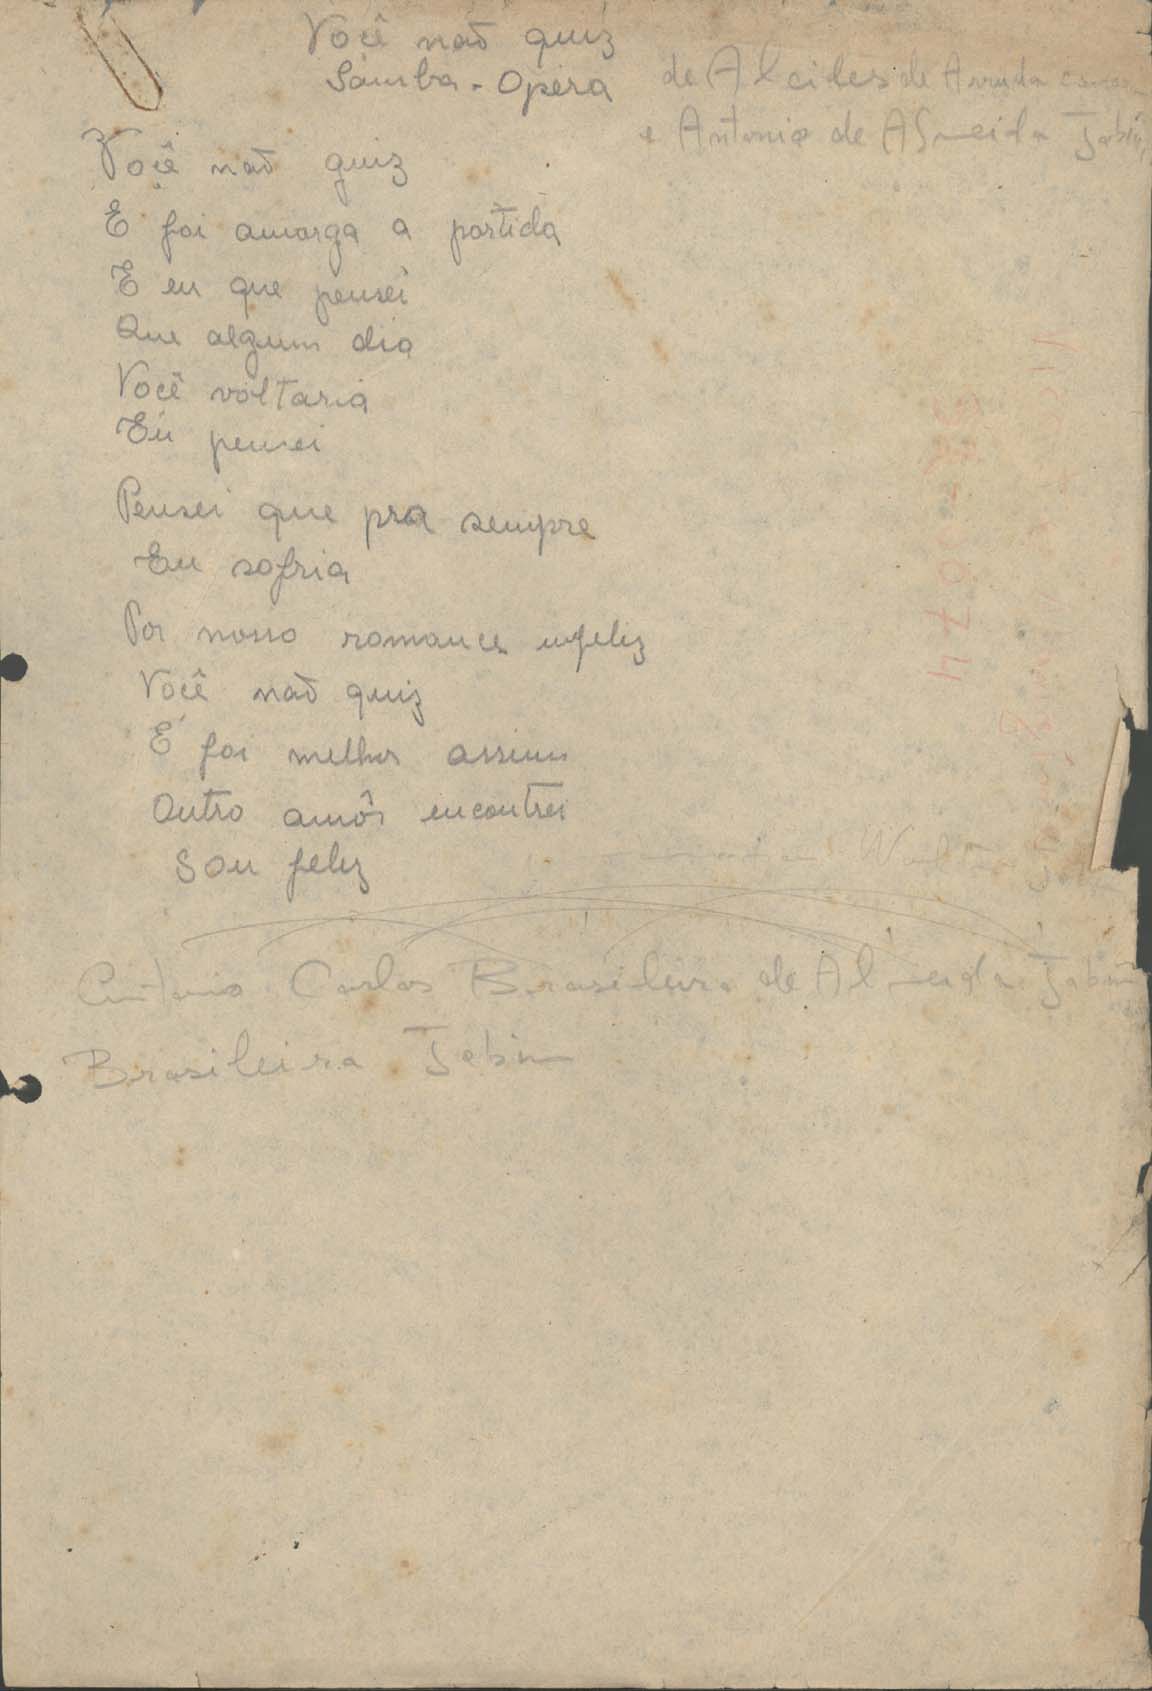 Você naõ quiz
Samba-Opera
de Alcides de Arruda
e Antonio de Almeida Jobim
Você naõ quiz
E foi amarga a partida
E eu que pensei
Que algum dia
Você voltaria
Eu pensei
Pensei que pra sempre
Eu sofria
Por nosso romance infeliz
Você naõ quiz
E foi melhor assim
Outro amôr encontrei
Sou feliz
Antonio Carlos Brasileiro de Almeida Jobim
Brasileira Jobim